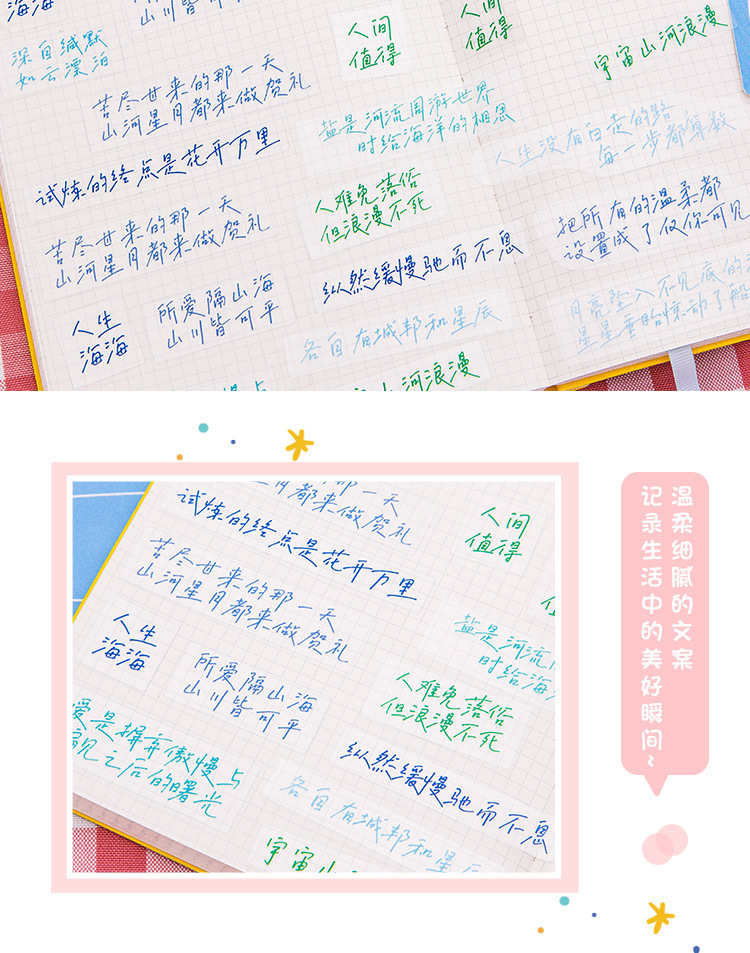 海海
山川皆可
人间
值得
人间
值得
宇宙山河浪漫
深自缄默
如云漂泊
苦尽甘来的那一天
山河星月都来做贺礼
盐是河流周游世界
时给海洋的相思
人生没有白走的路
每一步都算数
试炼的终点是花开万里
人难免落俗
但浪漫不死
把所有的温柔都
设置成了仅你可见
苦尽甘来的那一天
山河星月都来做贺礼
纵然缓慢驰而不息
人生
海海
所爱隔山海
山川皆可平
各自有城邦和星辰
月亮坠入不见底的
星星垂眙惊动了船
山河浪漫
慢与
那一天
月都来做贺礼
试炼的终点是花开万里
人间
值得
苦尽甘来的那一天
山河星月都来做贺礼
盐是河流
时给海
人生
海海
所爱隔山海
山川皆可平
人难免落俗
但浪漫不死
爱是摒弃傲慢与
见之后的曙光
纵然缓慢驰而不息
各自有城邦和星辰
宇宙山
温柔细腻的文案
记录生活中的美好瞬间~